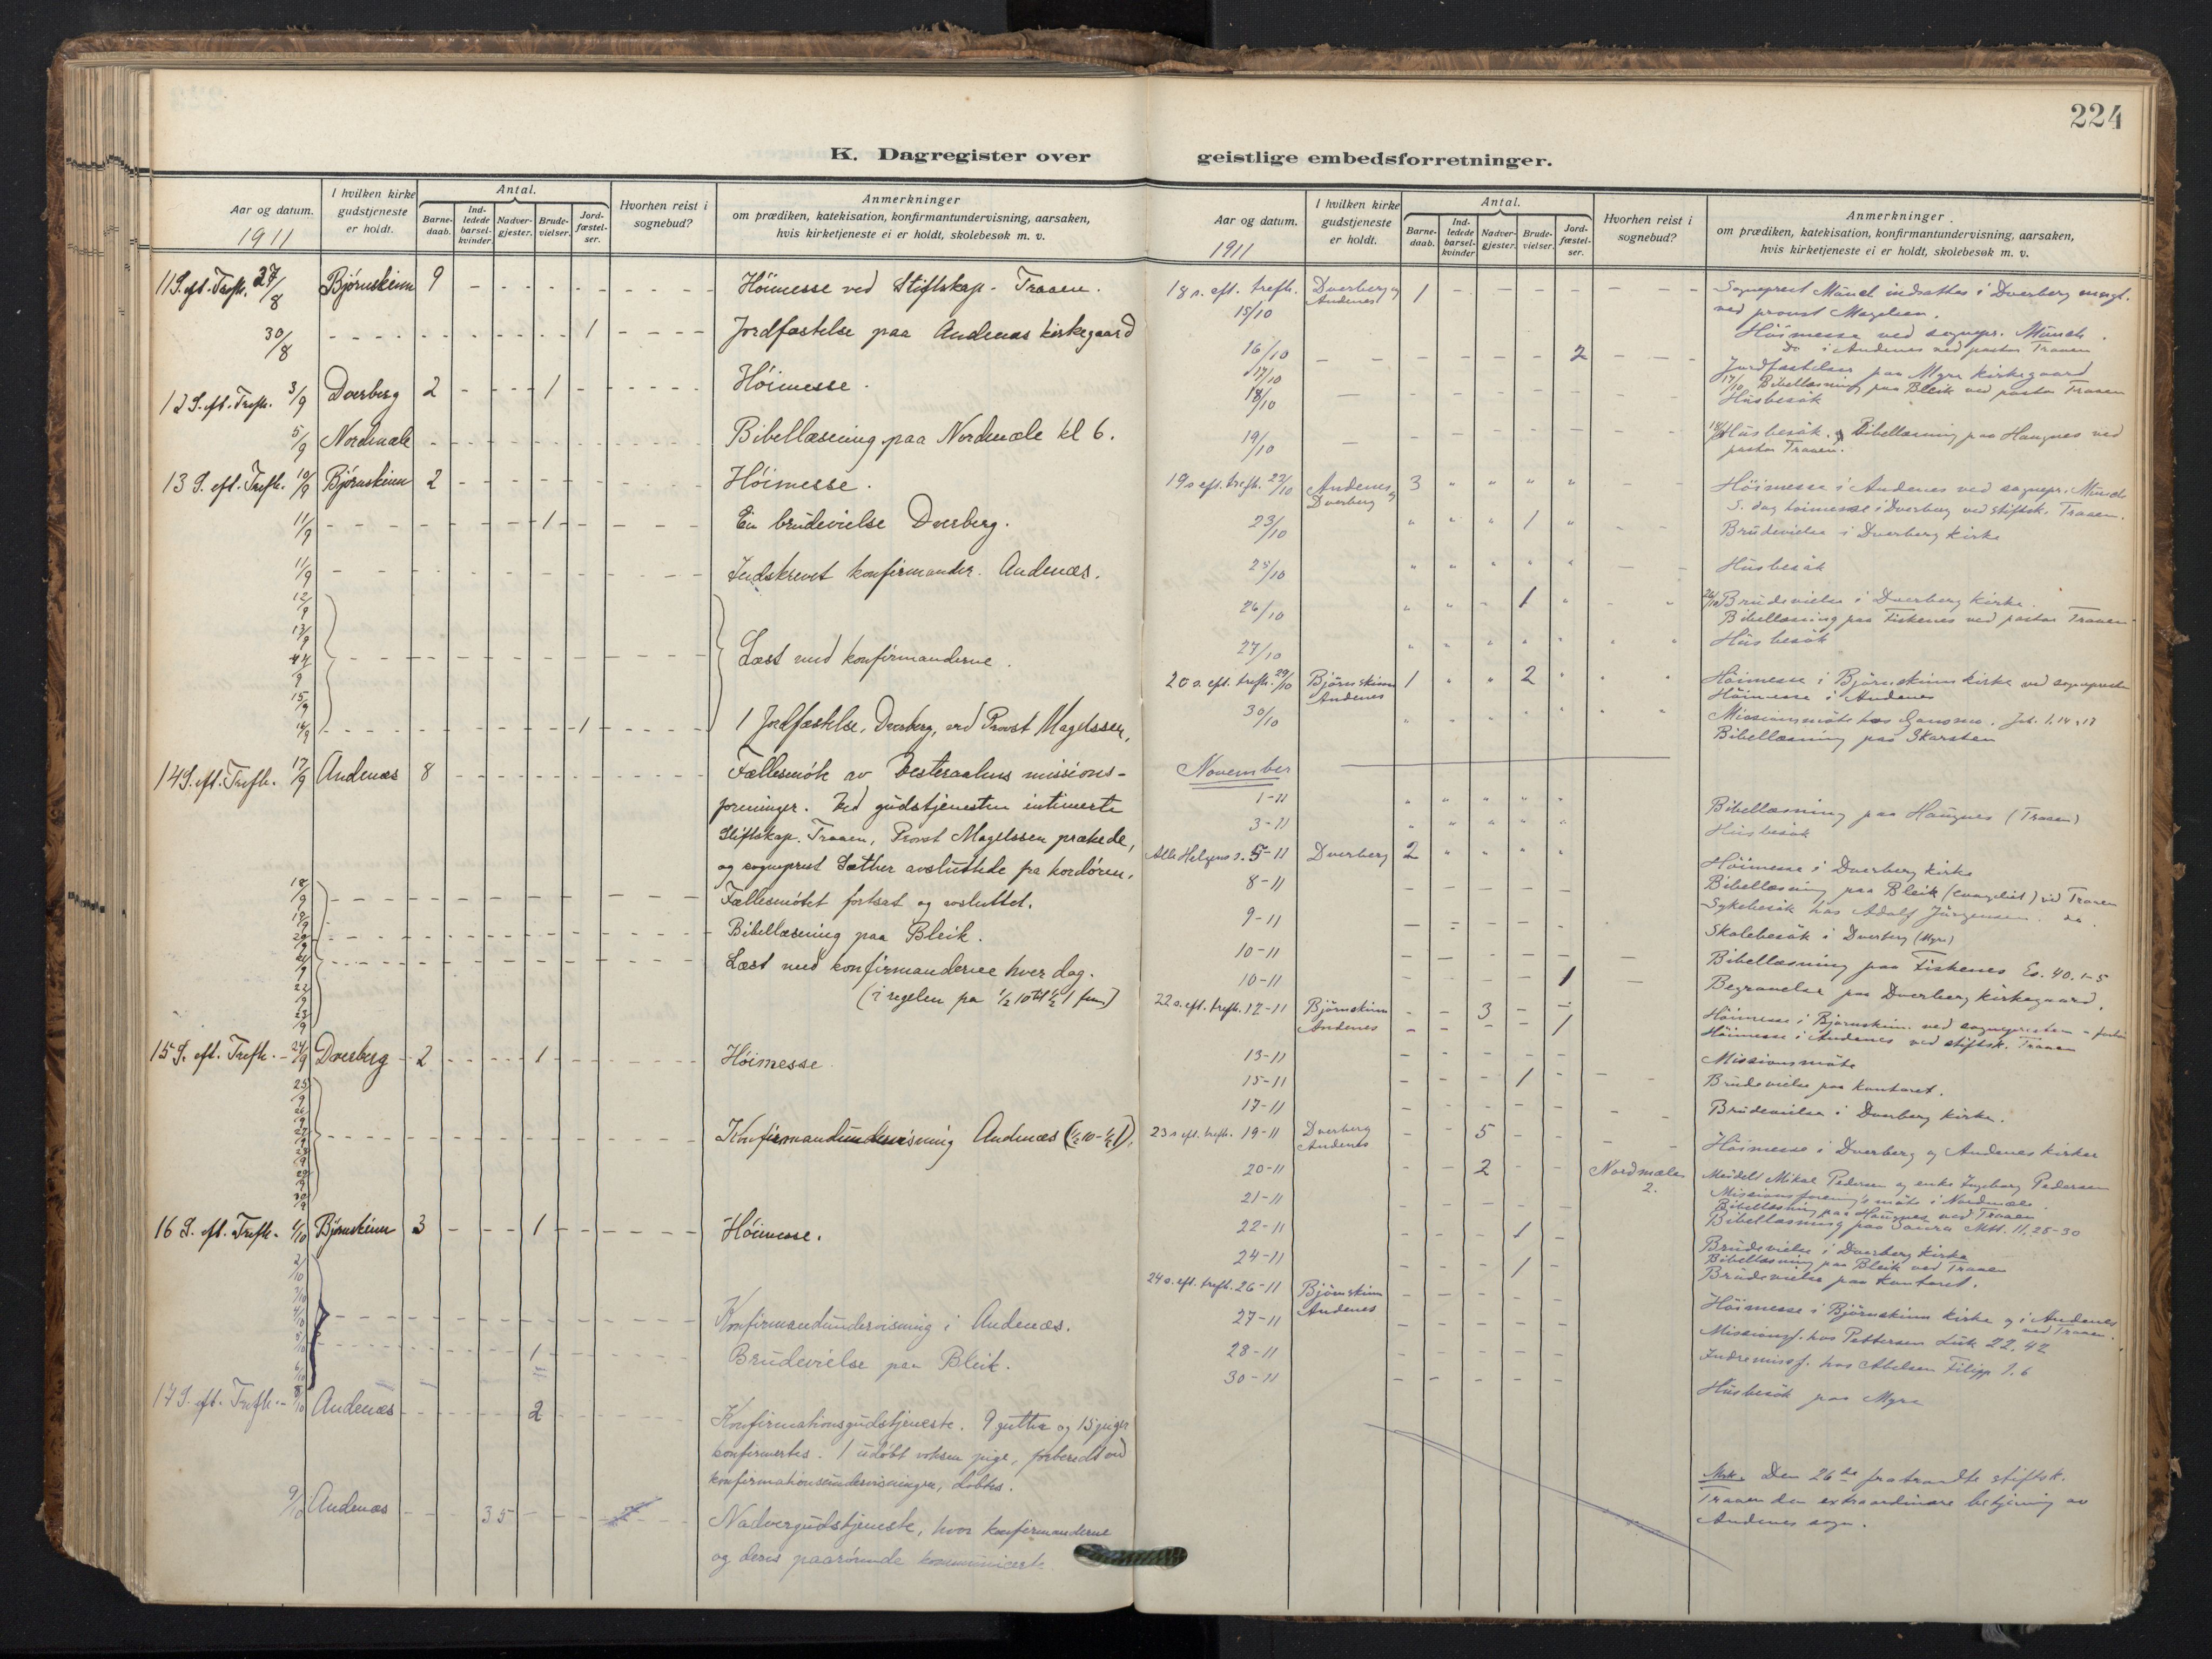 224
K. Dagregister over geistlige embedsforretninger.
Aar og datum. 1911
I hvilken kirke gudstjeneste er holdt.
Antal.
Barne-daab.
Ind-ledede barsel-kvinder
Nadver-gjester.
Brude-vielser.
Jord-fæstel-ser.
Hvorhen reist i sognebud?
Anmerkninger
om prædiken, katekisation, konfirmantundervisning, aarsaken,
hvis kirketjeneste ei er holdt, skolebesøk m. v.
11 S. eft. Trefh. 27/8 Bjørnskinn 9 Höimesse ved Stiftskap. Traaen.
30/8 1 Jordfæstelse paa Andenæs kirkegaard
12 S. eft. Trefh. 3/9 Dverberg 2 1 Höimesse.
5/9 Nordmæle Bibellæsning paa Nordmæle kl 6.
13 S. eft. Trefh. 10/9 Bjørnskinn 2 Höimesse.
11/9 1 En brudevielse Dverberg.
11/9 Indskrevet konfirmander. Andenæs.
12/9
13/9
14/9 Læst med konfirmanderne.
15/9
16/9 1 1 Jordfæstelse, Dverberg, ved Provst Magelssen,
14 S. eft. Trefh. 17/9 Andenæs 8 Fællesmöte av Vesteraalens missions-
foreninger. Ved gudstjenesten intimerte
Stiftskap. Traaen, Provst Magelssen prækede,
og sogneprest Sæther avsluttede fra kordören.
18/9 Fællesmötet fortsat og avsluttet.
19/9
20/9 Bibellæsning paa Bleik.
21/9 Læst med konfirmanderne hver dag.
22/9 (i regelen fra 1/2 10 til 1/2 1 fm)
23/9
15 S. eft. Trefh. 24/9 Dverberg 2 1 Höimesse
25/9
26/9
27/9 Konfirmandundervisning Andenæs (1/2 10 - 1/2 1).
28/9
29/9
30/9
16 S. eft. Trefh. 1/10 Bjørnskinn 3 1 Höimesse.
2/10
3/10
4/10 Konfirmandundervisning i Andenæs.
5/10 1 Brudevielse paa Bleik.
6/10
17 S. eft. Trefh. 8/10 Andenæs 2 Konfirmationsgudstjeneste. 9 gutter og 15 piger
konfirmertes. 1 udöbt voksen pige, forberedt ved
konfirmationsundervisningen, döbtes.
9/10 Andenæs 35 Nadvergudstjeneste, hvor konfirmanderne
og deres paarörende kommunicerte
Aar og datum. 1911
I hvilken kirke gudstjeneste er holdt.
Antal.
Barne-daab.
Ind-ledede barsel-kvinder
Nadver-gjester.
Brude-vielser.
Jord-fæstel-ser.
Hvorhen reist i sognebud?
Anmerkninger.
om prædiken, katekisation, konfirmantundervisning, aarsaken,
hvis kirketjeneste ei er holdt, skolebesøk m. v.
18 s. eft. trefh. 15/10 Dverberg og Andenes 1 Sogneprest Münch indsattes i Dverberg
ved provst Magelsen.
Höimesse ved sognepr. Münch.
Do i Andenes ved pastor Traaen
16/10 2 Jordfæstelser paa Myre kirkegaard
17/10 17/10 Bibellæsning paa Bleik ved pastor Traaen
18/10 Husbesök
19/10 Husbesök. Bibellæsning paa Haugnes ved
pastor Traaen.
19 s. eft. trefh. 22/10 Andenes og Dverberg 3 Höimesse i Andenes ved sognepr. Münch
S. dag höimesse i Dverberg ved stiftsk. Traaen.
23/10 1 Brudevielse i Dverberg kirke
25/10 Husbesök
26/10 1 26/10 Brudevielse i Dverberg kirke.
Bibellæsning paa Fiskenes ved pastor Traaen
27/10 Husbesök
20 s. eft. trefh. 29/10 Bjørnskinn Andenes 1 2 Höimesse i Bjørnskinn kirke ved sognepresten
Höimesse i Andenes
30/10 Missionsmöte hos . Joh. 1,14, 17
Bibellæsning paa Skarsten
November
1-11 Bibellæsning paa Haugnes (Traaen)
3-11 Husbesök
Alle Helgens s. 5-11 Dverberg 2 Höimesse i Dverberg kirke
8-11 Bibellæsning paa Bleik (evangeliet) ved Traaen
9-11 Sykebesök hos Adolf Jörgensen. do
10-11 Skolebesök i Dverberg (Myre)
Bibellæsning paa Fiskenes Es. 40. 1-5
10-11 1 Begravelse paa Dverberg kirkegaard.
22 s. eft. trefh. 12-11 Bjørnskinn Andenes 3 1 Höimesse i Bjørnskinn. ved sognepresten
Höimesse i Andenes ved stiftsk. Traaen
13-11 Missionsmöte
15-11 1 Brudevielse paa kontoret.
17-11 Brudevielse i Dverberg kirke.
23 s. eft. trefh. 19-11 Dverberg Andenes 5 Höimesse i Dverberg og Andenes kirker
20-11 2 Nordmæle 2. Meddelt Mikal Pedersen og enke Ingeborg Pedersen
21-11 Missionsforenings möte i Nordmæle.
Bibellæsning paa Haugnes ved Traaen
22-11 1 Bibellæsning paa Saura Mtt. 11, 28-30
Brudevielse i Dverberg kirke
24-11 1 Bibellæsning paa Bleik ved Traaen
Brudevielse paa kontoret.
24 s. eft. trefh. 26-11 Bjørnskinn Andenes Höimesse i Bjørnskinn kirke og i Andenes
ved Traaen.
27-11 Missionsf. hos Pettersen Luk 22, 42
28-11 Indremissf. hos Abelsen Filipp 1, 6
30-11 Husbesök paa Myre
Mrk. Den 26de fratraadte stiftsk.
Traaen den extraordinære betjening av
Andenes sogn.